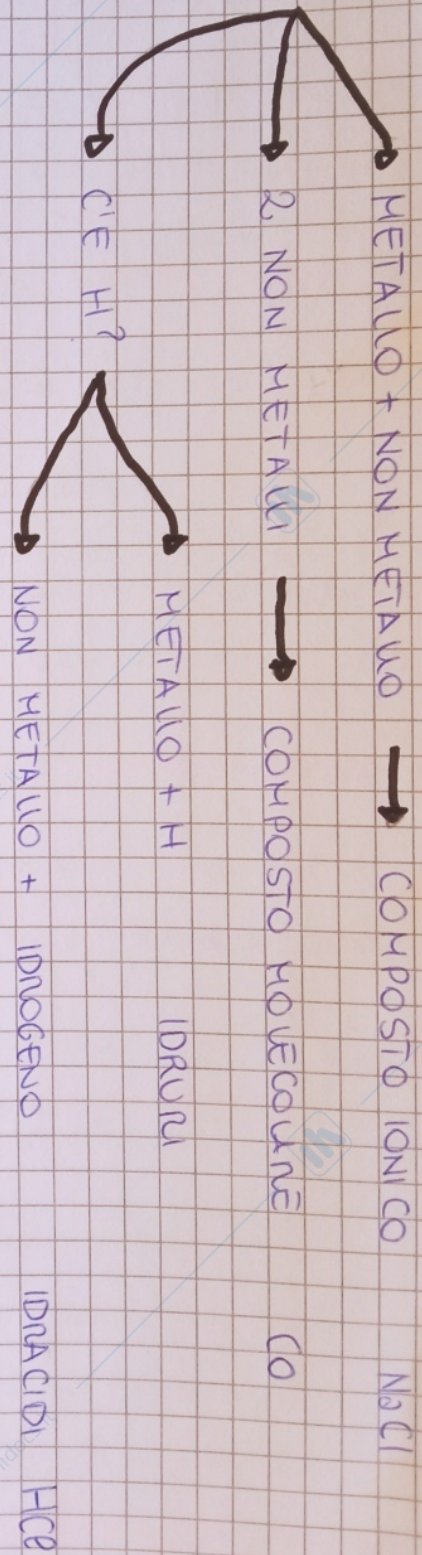 METALLO + NON METALLO → COMPOSTO IONICO NaCl
2 NON METALLI → COMPOSTO MOLECOLARE CO
C'E H?
METALLO + H IDRURI
NON METALLO + IDROGENO IDRACIDI HCl